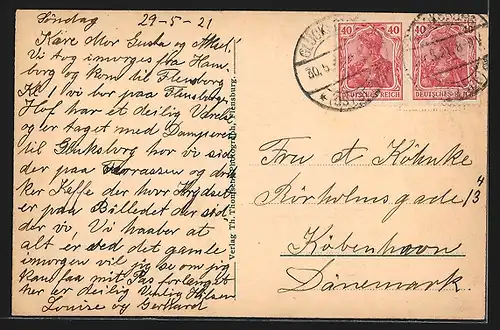 Søndag 29-5-21
Kære Mor Gusta og Alfred!
Vi tog imorges fra Ham-
borg og kom til Flensborg
Kl 1 vi bor paa Flensborger
Hof har et deilig Værelse
og er taget med Damperen
til Gluksborg hor vi sid
der paa Terrassen og drik
ker Kaffe der horr Krydset
er paa Billedet der sid
der vi, Vi haaber at
alt er ved det gamle
imorgen vil jeg se om jeg
kan faa mit Pas forlænget
her er deilig Venlig Hilsen
Louise og Gerhard
Verlag Th. Thomsen, Flensburg.
40 40 40
DEUTSCHES REICH
DEUTSCHES REICH
GLÜCKSBURG
30.5.21
Fru A Köhnke
Rörholmsgade 13 4
København
Dänemark.